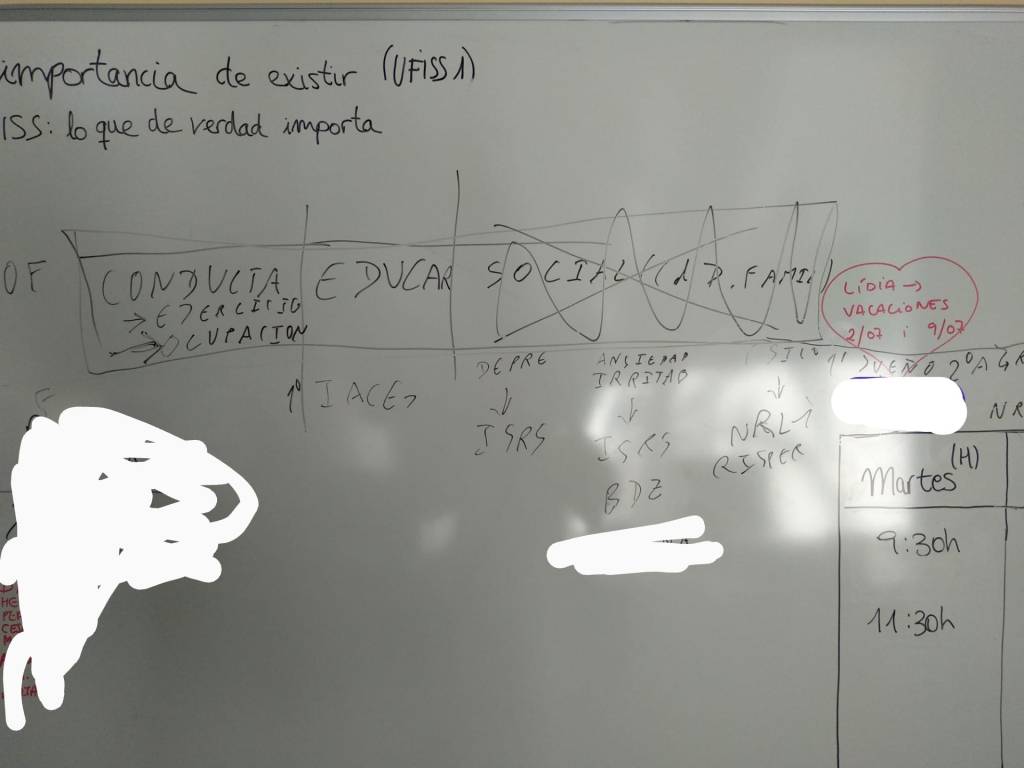 importancia de existir (UFISS1)
ISS: lo que de verdad importa
OF
CONDUCTA EDUCAR SOCIAL
→ EJERCICIO
→ OCUPACION
LÍDIA →
VACACIONES
2/07 i 9/07
DEPRE ANSIEDAD
IRRITAB
1º SUEÑO 2º AGR
1º IACEs
↓ ↓ ↓
ISRS ISRS NRL
RISPER
BDZ
NR
Martes (H)
9:30h
11:30h